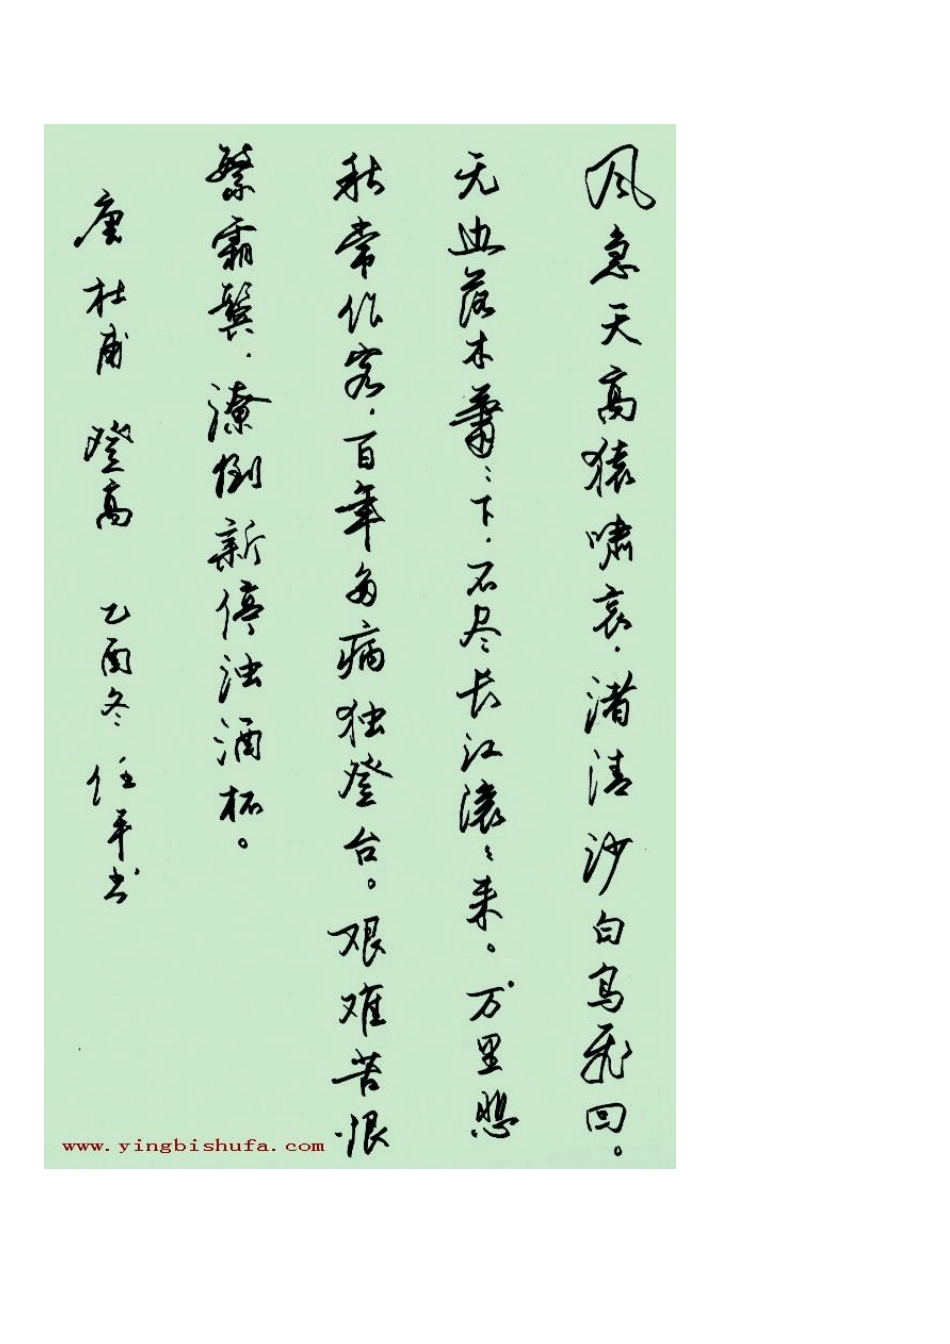 风急天高猿啸哀.渚清沙白鸟飞回。
无边落木萧:下.不尽长江滚:来。万里悲
秋常作客.百年多病独登台。艰难苦恨
繁霜鬓.潦倒新停浊酒杯。
唐 杜甫 登高 乙酉冬 任平书
www.yingbishufa.com